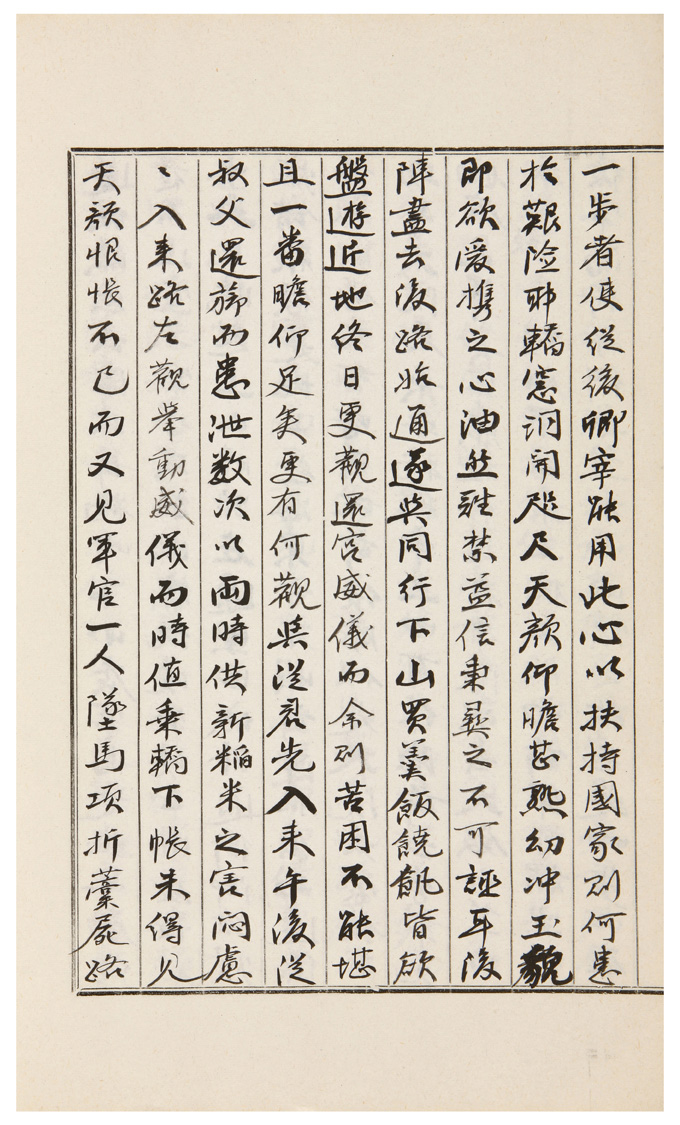 一步者使從後卿宰能用此心以扶持國家則何患
於艱險耶轎窓洞開咫尺天顔仰瞻甚熟幼冲玉貌
即欲爰携之心油然難禁益信秉彛之不可誣耳後
陣盡去後路始通遂與同行下山買羹飯饒飢皆欲
盤遊近地終日更觀還宮威儀而余則苦困不能堪
且一番瞻仰足矣更有何觀與從君先入来午後從
叔父還旆而患泄数次以兩時供新稻米之害悶慮
〻入来路左觀擧動威儀而時値乗轎下帳未得見
天顔恨悵不已而又見軍官一人墜馬項折藁屍路